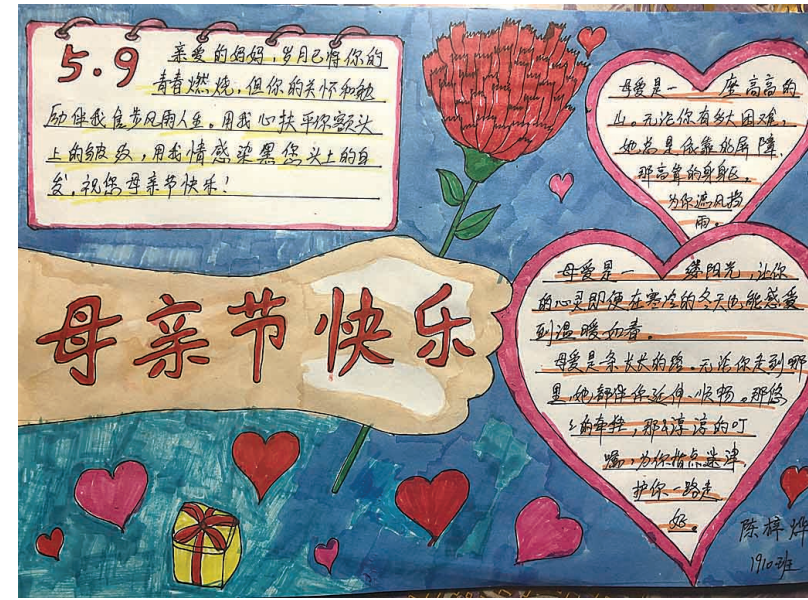 5.9
亲爱的妈妈，岁月已将你的
青春燃烧，但你的关怀和勉
励伴我信步风雨人生。用我心抚平你额头
上的皱纹，用我情感染黑您头上的白
发。祝您母亲节快乐！
母亲节快乐
母爱是一座高高的
山。无论你有多大困难，
她总是依靠的屏障，
那高耸的身躯。
为你遮风挡
雨。
母爱是一缕阳光，让你
的心灵即便在寒冷的冬天也能感受
到温暖如春。
母爱是条长长的路。无论你走到哪
里，她都伴你延伸、顺畅。那悠
的牵挂，那淳淳的叮
嘱，为你指点迷津，
护你一路走
好。
陈梓烨
1910班